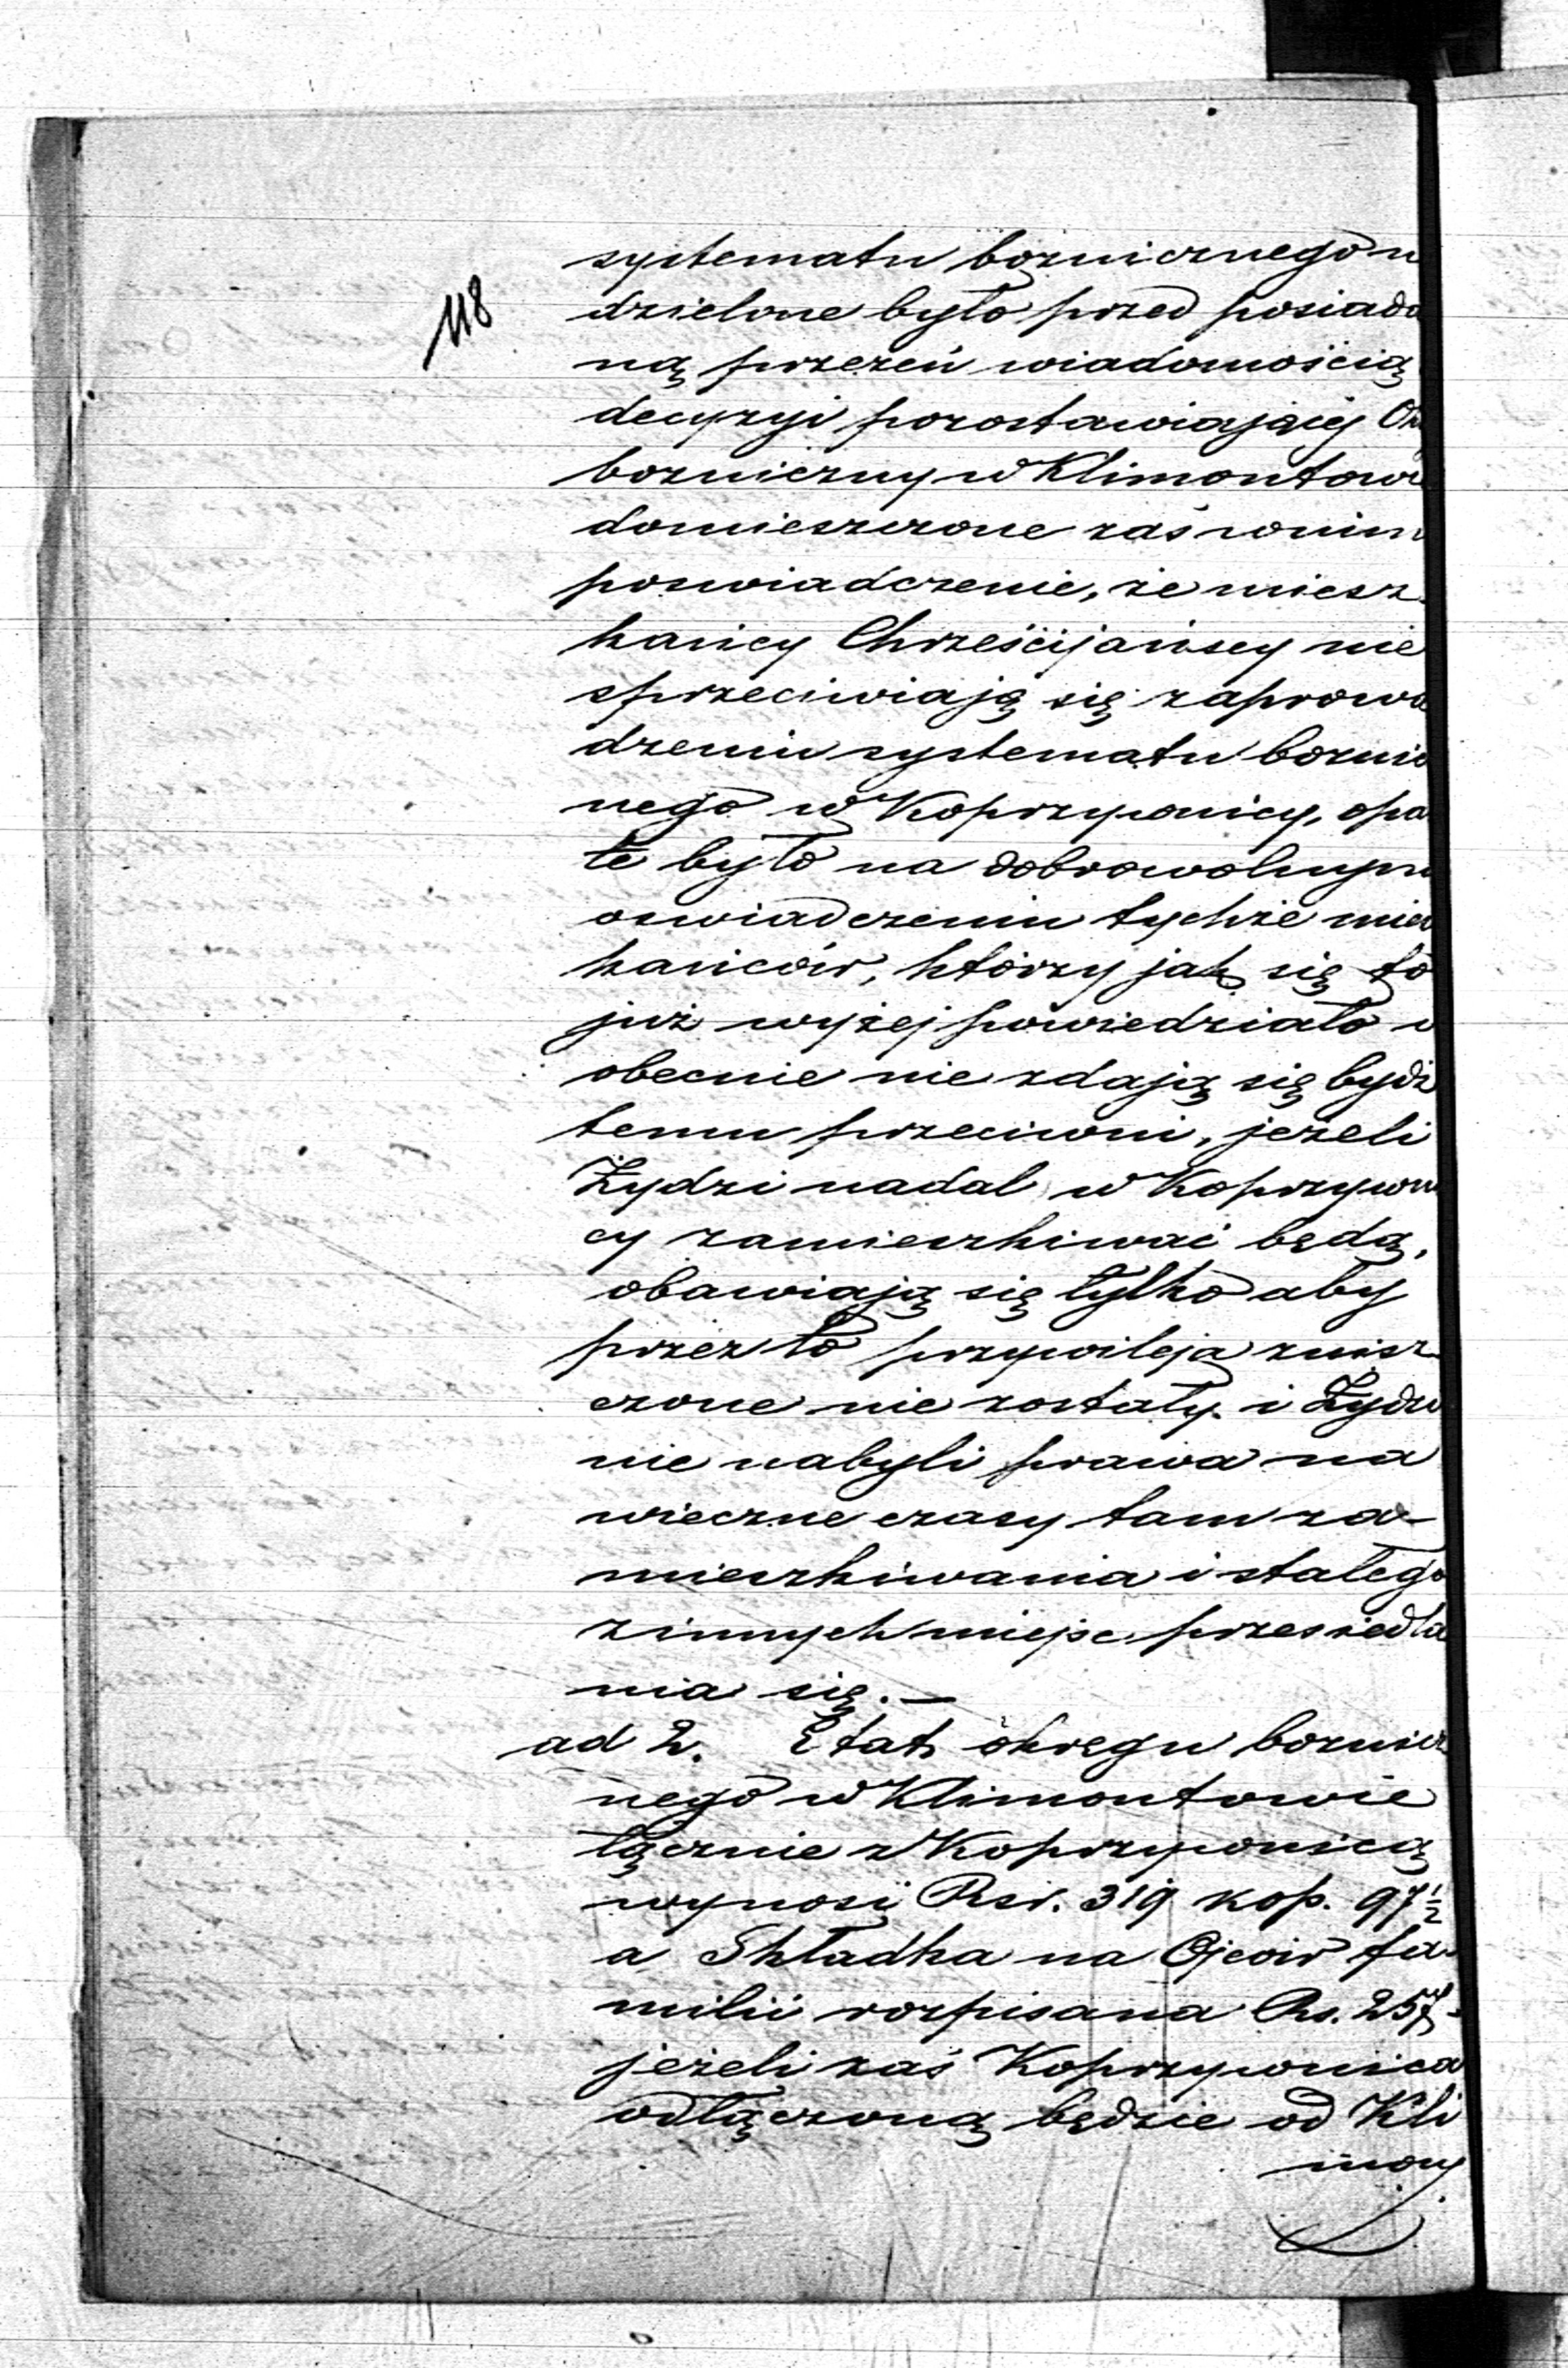 118
systematu bożnicznego u
dzielone było przed posiada
ną przezeń wiadomością
decyzyi pozostawiającej Ok
bożniczny w Klimontow
domieszczone zaś w nim
poswiadczenie, że miesz
kańcy Chrześcijańscy nie
sprzeciwiają się zaprowa
dzeniu systematu boznic
nego w Koprzywnicy, opa
te było na dobrowolnym
oswiadczeniu tychże miesz
kańców, którzy jak się to
już wyżej powiedziało i
obecnie nie zdają się bydź
temu przeciwni, jeżeli
Żydzi nadal w Koprzywni
cy zamieszkiwać będą,
obawiają się tylko aby
przez to przywileja znisz
czone nie zostały i Żydzi
nie nabyli prawa na
wieczne czasy tam za-
mieszkiwania i stałego
z innych miejsc przesiedla
nia się. —
ad 2. Etat okręgu boznicz
nego w Klimontowie
łącznie z Koprzywnicą
wynosi Rsr. 319 kop. 97½
a Składka na Ojców fa
milii rozpisana Rs. 257
jeżeli zaś Koprzywnica
odłączoną będzie od Kli
mon